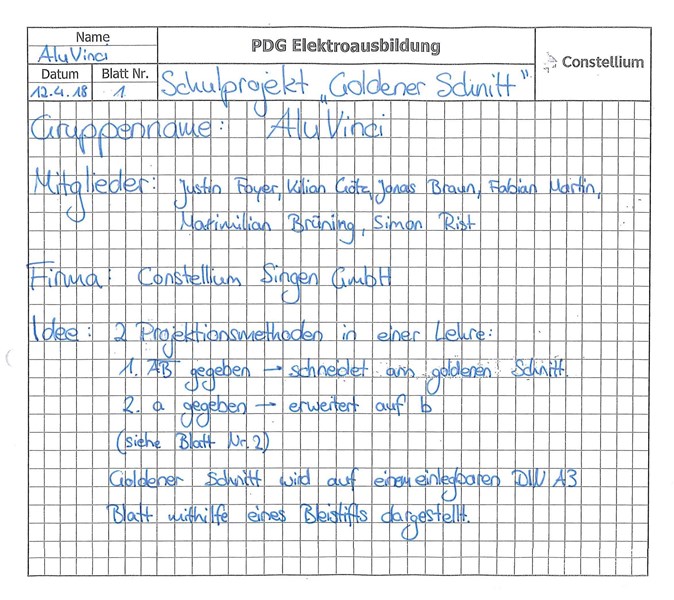 Name
AluVinci
PDG Elektroausbildung
Constellium
Datum
Blatt Nr.
12.4.18
1
Schulprojekt „Goldener Schnitt"
Gruppenname: AluVinci
Mitglieder: Justin Foyer, Kilian Götz, Jonas Braun, Fabian Martin,
Maximilian Brüning, Simon Rist
Firma: Constellium Singen GmbH
Idee: 2 Projektionsmethoden in einer Lehre:
1. AB gegeben → schneidet am goldenen Schnitt.
2. a gegeben → erweitert auf b
(siehe Blatt Nr. 2)
Goldener Schnitt wird auf einem einlegbaren DIN A3
Blatt mithilfe eines Bleistifts dargestellt.